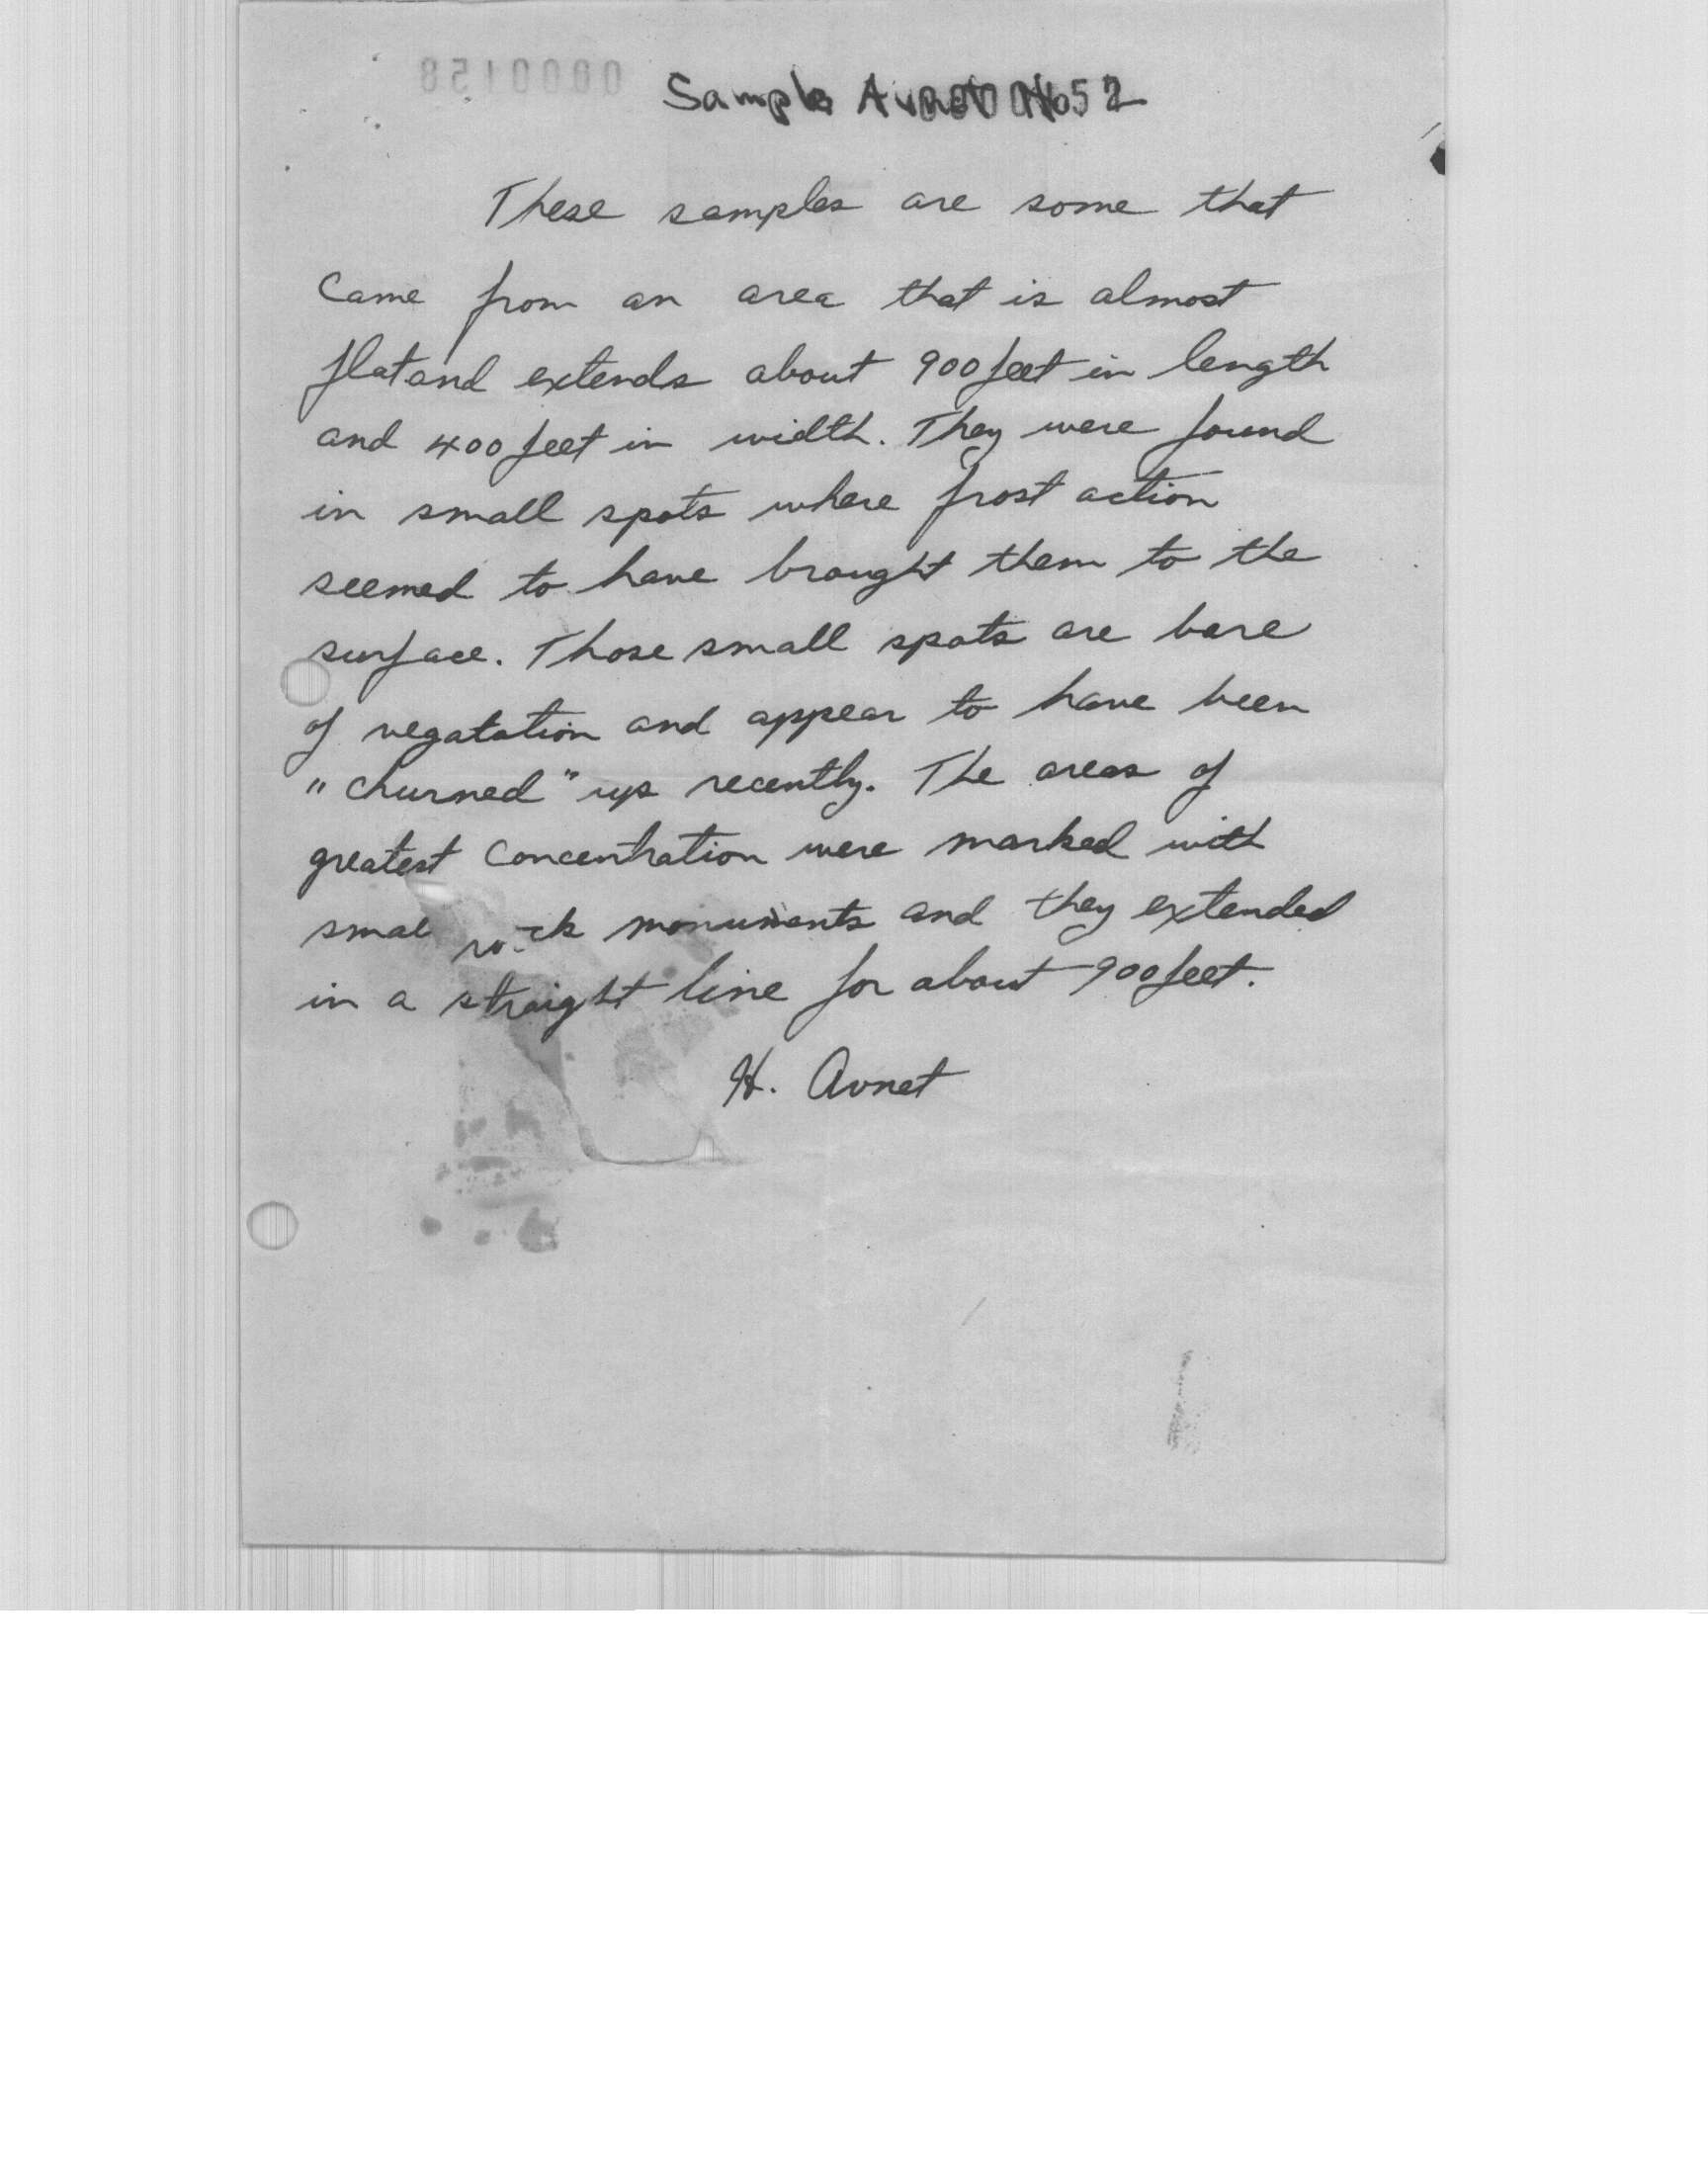 0000158
Sample Avnet No 52
These samples are some that
Came from an area that is almost
flat and extends about 900 feet in length
and 400 feet in width. They were found
in small spots where frost action
seemed to have brought them to the
surface. Those small spots are bare
of vegatation and appear to have been
"churned" up recently. The areas of
greatest concentration were marked with
smal rock monuments and they extended
in a straight line for about 900 feet.
H. Avnet